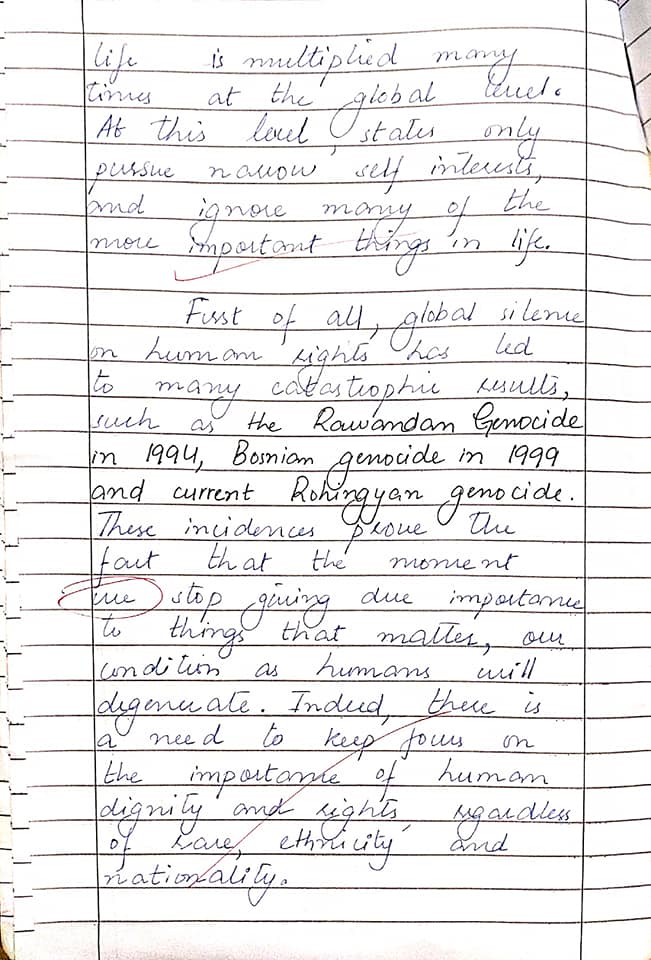 life is multiplied many
times at the global level.
At this level, states only
pursue narrow self interests,
and ignore many of the
more important things in life.
First of all, global silence
on human rights has led
to many catastrophic results,
such as the Rawandan Genocide
in 1994, Bosnian genocide in 1999
and current Rohingyan genocide.
These incidences prove the
fact that the moment
we stop giving due importance
to things that matter, our
condition as humans will
degenerate. Indeed, there is
a need to keep focus on
the importance of human
dignity and rights, regardless
of race, ethnicity and
nationality.